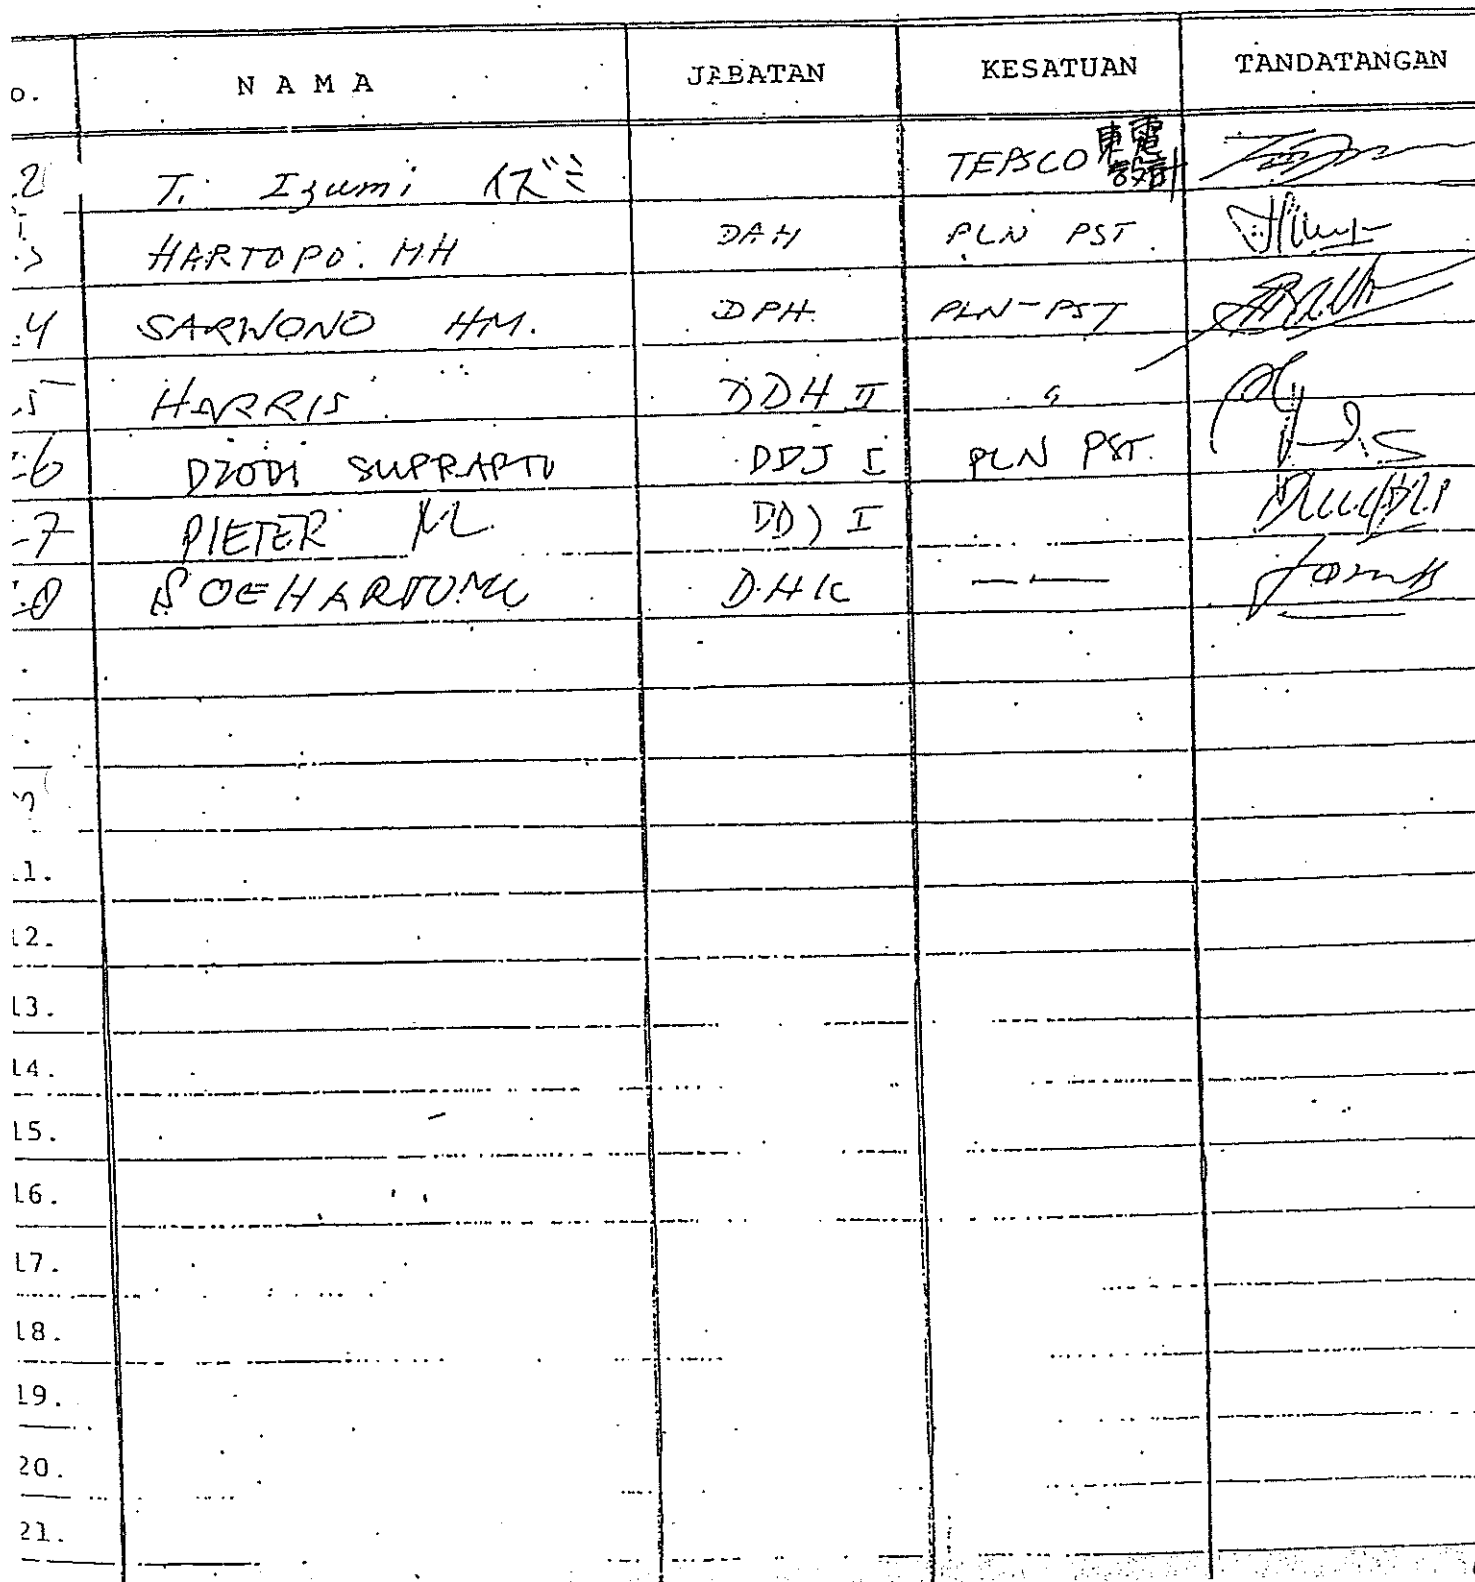 o. N A M A JABATAN KESATUAN TANDATANGAN
2 T. Izumi イズミ TEPSCO 東電設計
HARTOPO. MH DAH PLN PST.
4 SARWONO HM. DPH. PLN-PST
5 HARRIS DDH II "
6 DZODI SUPRAPTO DDJ I PLN PST.
7 PIETER M. DDJ I
8 SOEHARTONO D.H.K — —
11.
12.
13.
14.
15.
16.
17.
18.
19.
20.
21.